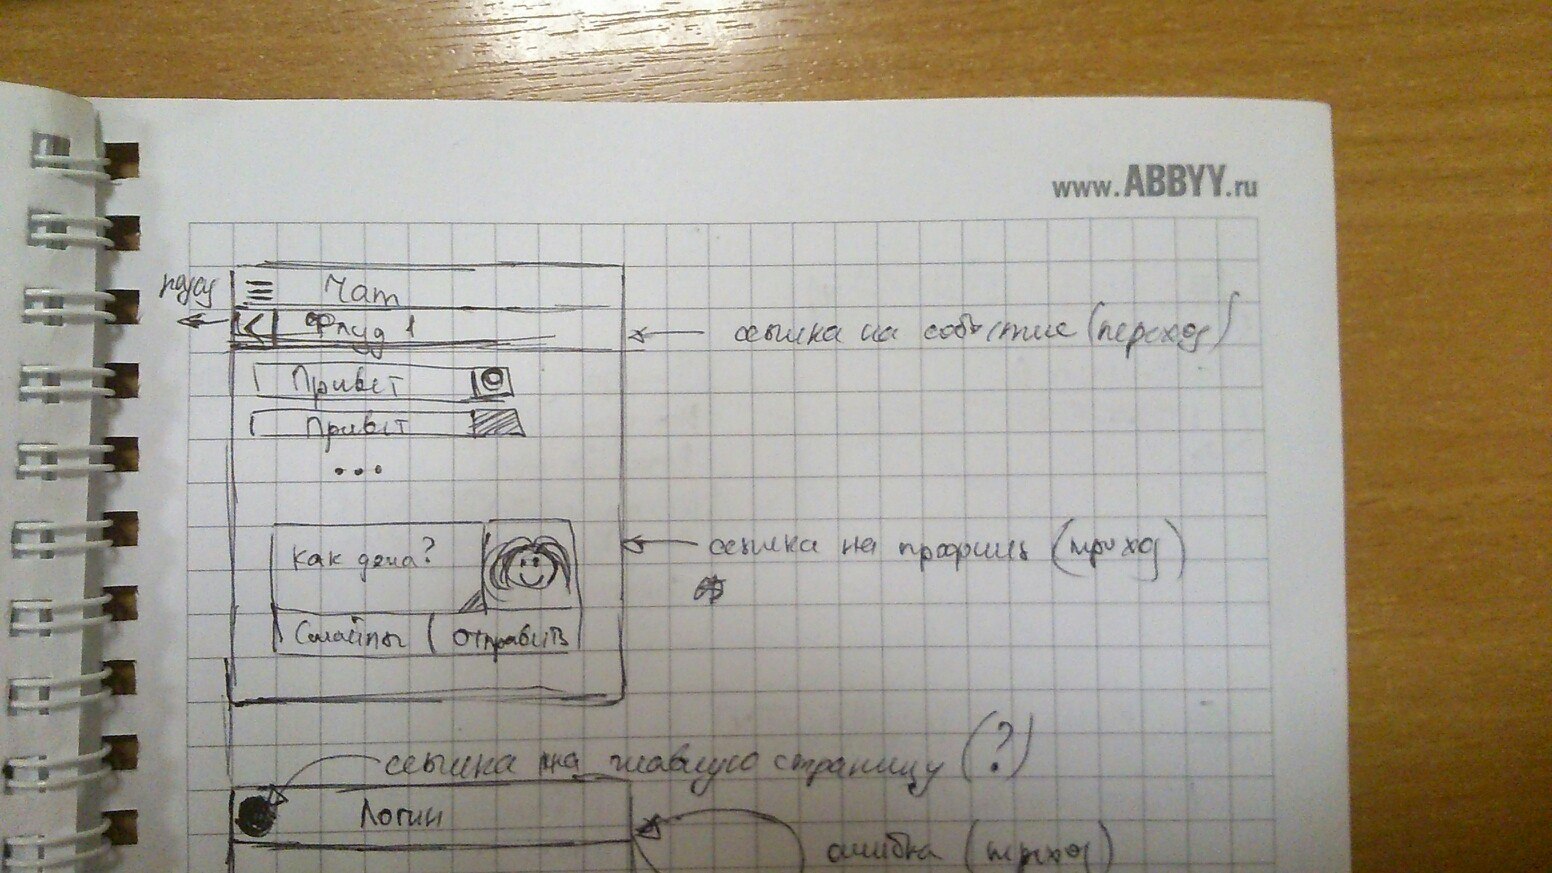 www.ABBYY.ru
Чат
Флуд 1
ссылка на событие (переход)
Привет
Привет
...
Как дела?
ссылка на профиль (переход)
Смайлы
Отправить
ссылка на главную страницу (?)
Логин
ошибка (переход)